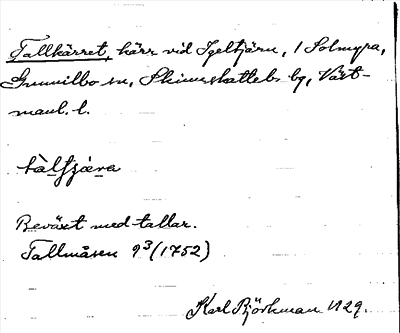 Tallkärret, kärr vid Igeltjärn, i Solmyra,
Gunnilbo sn, Skinnskattebs bg, Väst-
manl. l.
tàlʃɟæ̀ra
Beväxt med tallar.
Tallmåsen 9³ (1752)
Karl Björkman 1929.